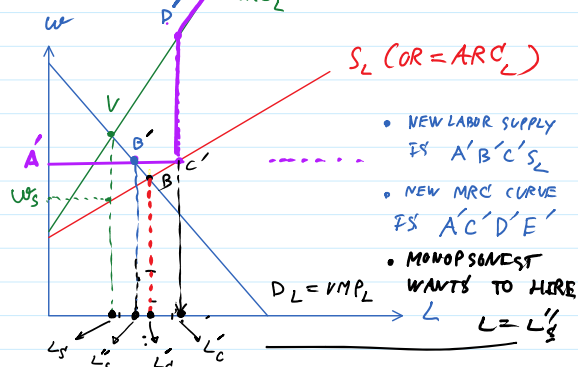 w
D'
S_L (OR = ARC_L)
V
B'
A'
C'
B
w_s
• NEW LABOR SUPPLY
IS A'B'C'S_L
• NEW MRC CURVE
IS A'C'D'E'
• MONOPSONEST
WANTS TO HIRE
L = L''_s
D_L = VMP_L
L
L_s
L''_s
L'_c